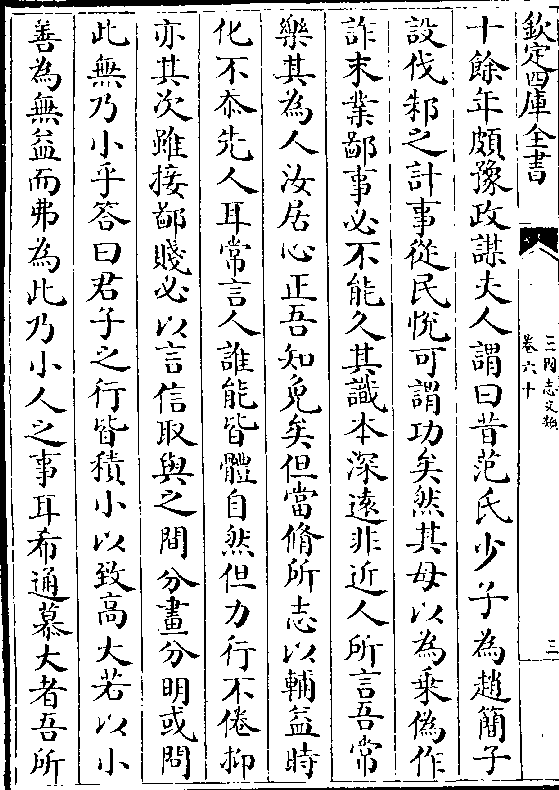 欽定四庫全書
三國志文類
卷六十
三
十餘年頗豫政謀夫人謂曰昔范氏少子為趙簡子
設伐邾之計事從民悅可謂功矣然其母以為乗偽作
詐末業鄙事必不能久其識本深逺非近人所言吾常
樂其為人汝居心正吾知免矣但當脩所志以輔益時
化不忝先人耳常言人誰能皆體自然但力行不倦抑
亦其次雖接鄙賤必以言信取與之間分畫分明或問
此無乃小乎答曰君子之行皆積小以致髙大若以小
善為無益而弗為此乃小人之事耳希通慕大者吾所